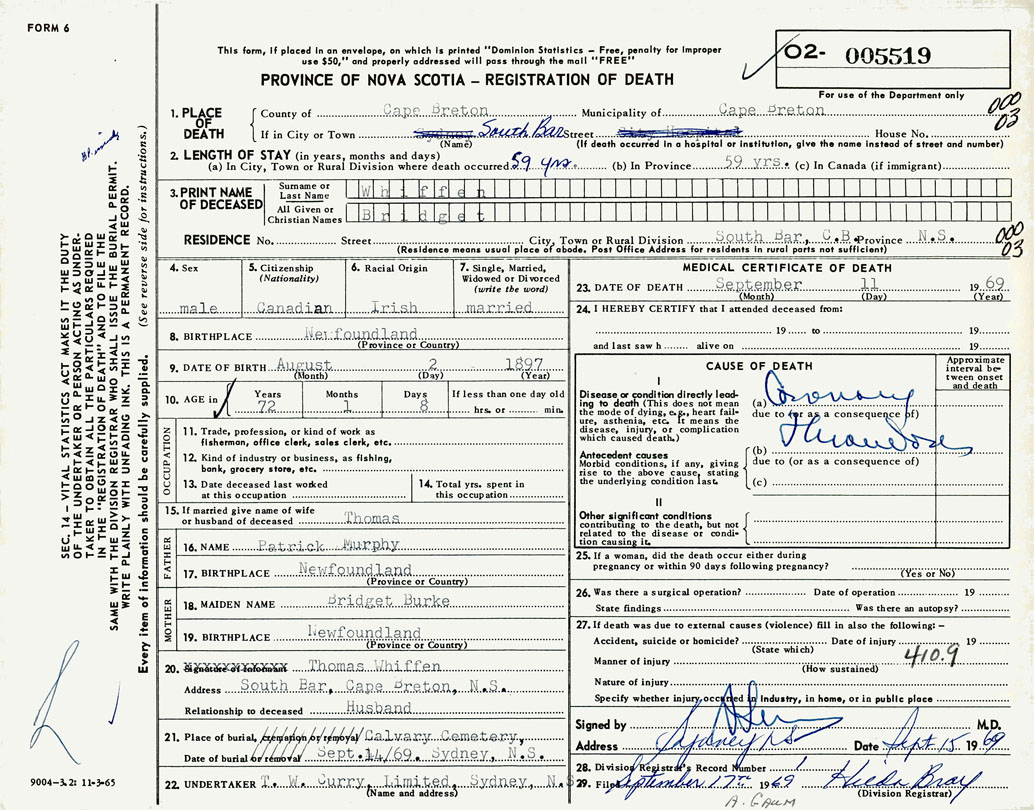 FORM 6
This form, if placed in an envelope, on which is printed "Dominion Statistics – Free, penalty for improper
use $50," and properly addressed will pass through the mail "FREE"
PROVINCE OF NOVA SCOTIA – REGISTRATION OF DEATH
02- 005519
For use of the Department only
000
03
1. PLACE OF DEATH
County of Cape Breton Municipality of Cape Breton
If in City or Town Sydney South Bar Street City Hospital House No.
(Name) (If death occurred in a hospital or institution, give the name instead of street and number)
2. LENGTH OF STAY (in years, months and days)
(a) In City, Town or Rural Division where death occurred 59 yrs. (b) In Province 59 yrs. (c) In Canada (if immigrant)
3. PRINT NAME OF DECEASED
Surname or Last Name Whiffen
All Given or Christian Names Bridget
RESIDENCE No. Street City, Town or Rural Division South Bar, C.B. Province N.S.
(Residence means usual place of abode. Post Office Address for residents in rural parts not sufficient)
000
03
4. Sex
male
5. Citizenship
(Nationality)
Canadian
6. Racial Origin
Irish
7. Single, Married,
Widowed or Divorced
(write the word)
married
8. BIRTHPLACE Newfoundland
(Province or Country)
9. DATE OF BIRTH August 2 1897
(Month) (Day) (Year)
10. AGE in
Years Months Days If less than one day old
72 1 8 hrs. or min.
OCCUPATION
11. Trade, profession, or kind of work as
fisherman, office clerk, sales clerk, etc.
12. Kind of industry or business, as fishing,
bank, grocery store, etc.
13. Date deceased last worked
at this occupation
14. Total yrs. spent in
this occupation
15. If married give name of wife
or husband of deceased Thomas
FATHER
16. NAME Patrick Murphy
17. BIRTHPLACE Newfoundland
(Province or Country)
MOTHER
18. MAIDEN NAME Bridget Burke
19. BIRTHPLACE Newfoundland
(Province or Country)
20. Signature of Informant Thomas Whiffen
Address South Bar, Cape Breton, N.S.
Relationship to deceased Husband
21. Place of burial, cremation or removal Calvary Cemetery,
Date of burial or removal Sept. 14/69. Sydney, N.S.
22. UNDERTAKER T. W. Curry, Limited, Sydney, N.S.
(Name and address)
MEDICAL CERTIFICATE OF DEATH
23. DATE OF DEATH September 11 1969
(Month) (Day) (Year)
24. I HEREBY CERTIFY that I attended deceased from:
19 to 19
and last saw h alive on 19
CAUSE OF DEATH
Approximate
interval be-
tween onset
and death
I
Disease or condition directly lead-
ing to death (This does not mean
the mode of dying, e.g., heart fail-
ure, asthenia, etc. It means the
disease, injury, or complication
which caused death.)
(a) Coronary
due to (or as a consequence of)
Thrombosis
Antecedent causes
Morbid conditions, if any, giving
rise to the above cause, stating
the underlying condition last.
(b)
due to (or as a consequence of)
(c)
II
Other significant conditions
contributing to the death, but not
related to the disease or condi-
tion causing it.
25. If a woman, did the death occur either during
pregnancy or within 90 days following pregnancy?
(Yes or No)
26. Was there a surgical operation? Date of operation 19
State findings Was there an autopsy?
27. If death was due to external causes (violence) fill in also the following: –
Accident, suicide or homicide? Date of injury 19
(State which)
410.9
Manner of injury
(How sustained)
Nature of injury
Specify whether injury occurred in Industry, in home, or in public place
Signed by M.D.
Address Sydney NS Date Sept 15 1969
28. Division Registrar's Record Number 1
29. Filed September 17th 1969 Hilda Bray
(Division Registrar)
A. GAUM
SEC. 14 – VITAL STATISTICS ACT MAKES IT THE DUTY
OF THE UNDERTAKER OR PERSON ACTING AS UNDER-
TAKER TO OBTAIN ALL THE PARTICULARS REQUIRED
IN THE "REGISTRATION OF DEATH" AND TO FILE THE
SAME WITH THE DIVISION REGISTRAR WHO SHALL ISSUE THE BURIAL PERMIT.
WRITE PLAINLY WITH UNFADING INK. THIS IS A PERMANENT RECORD.
Every item of information should be carefully supplied. (See reverse side for instructions.)
9004-3.2: 11-3-65